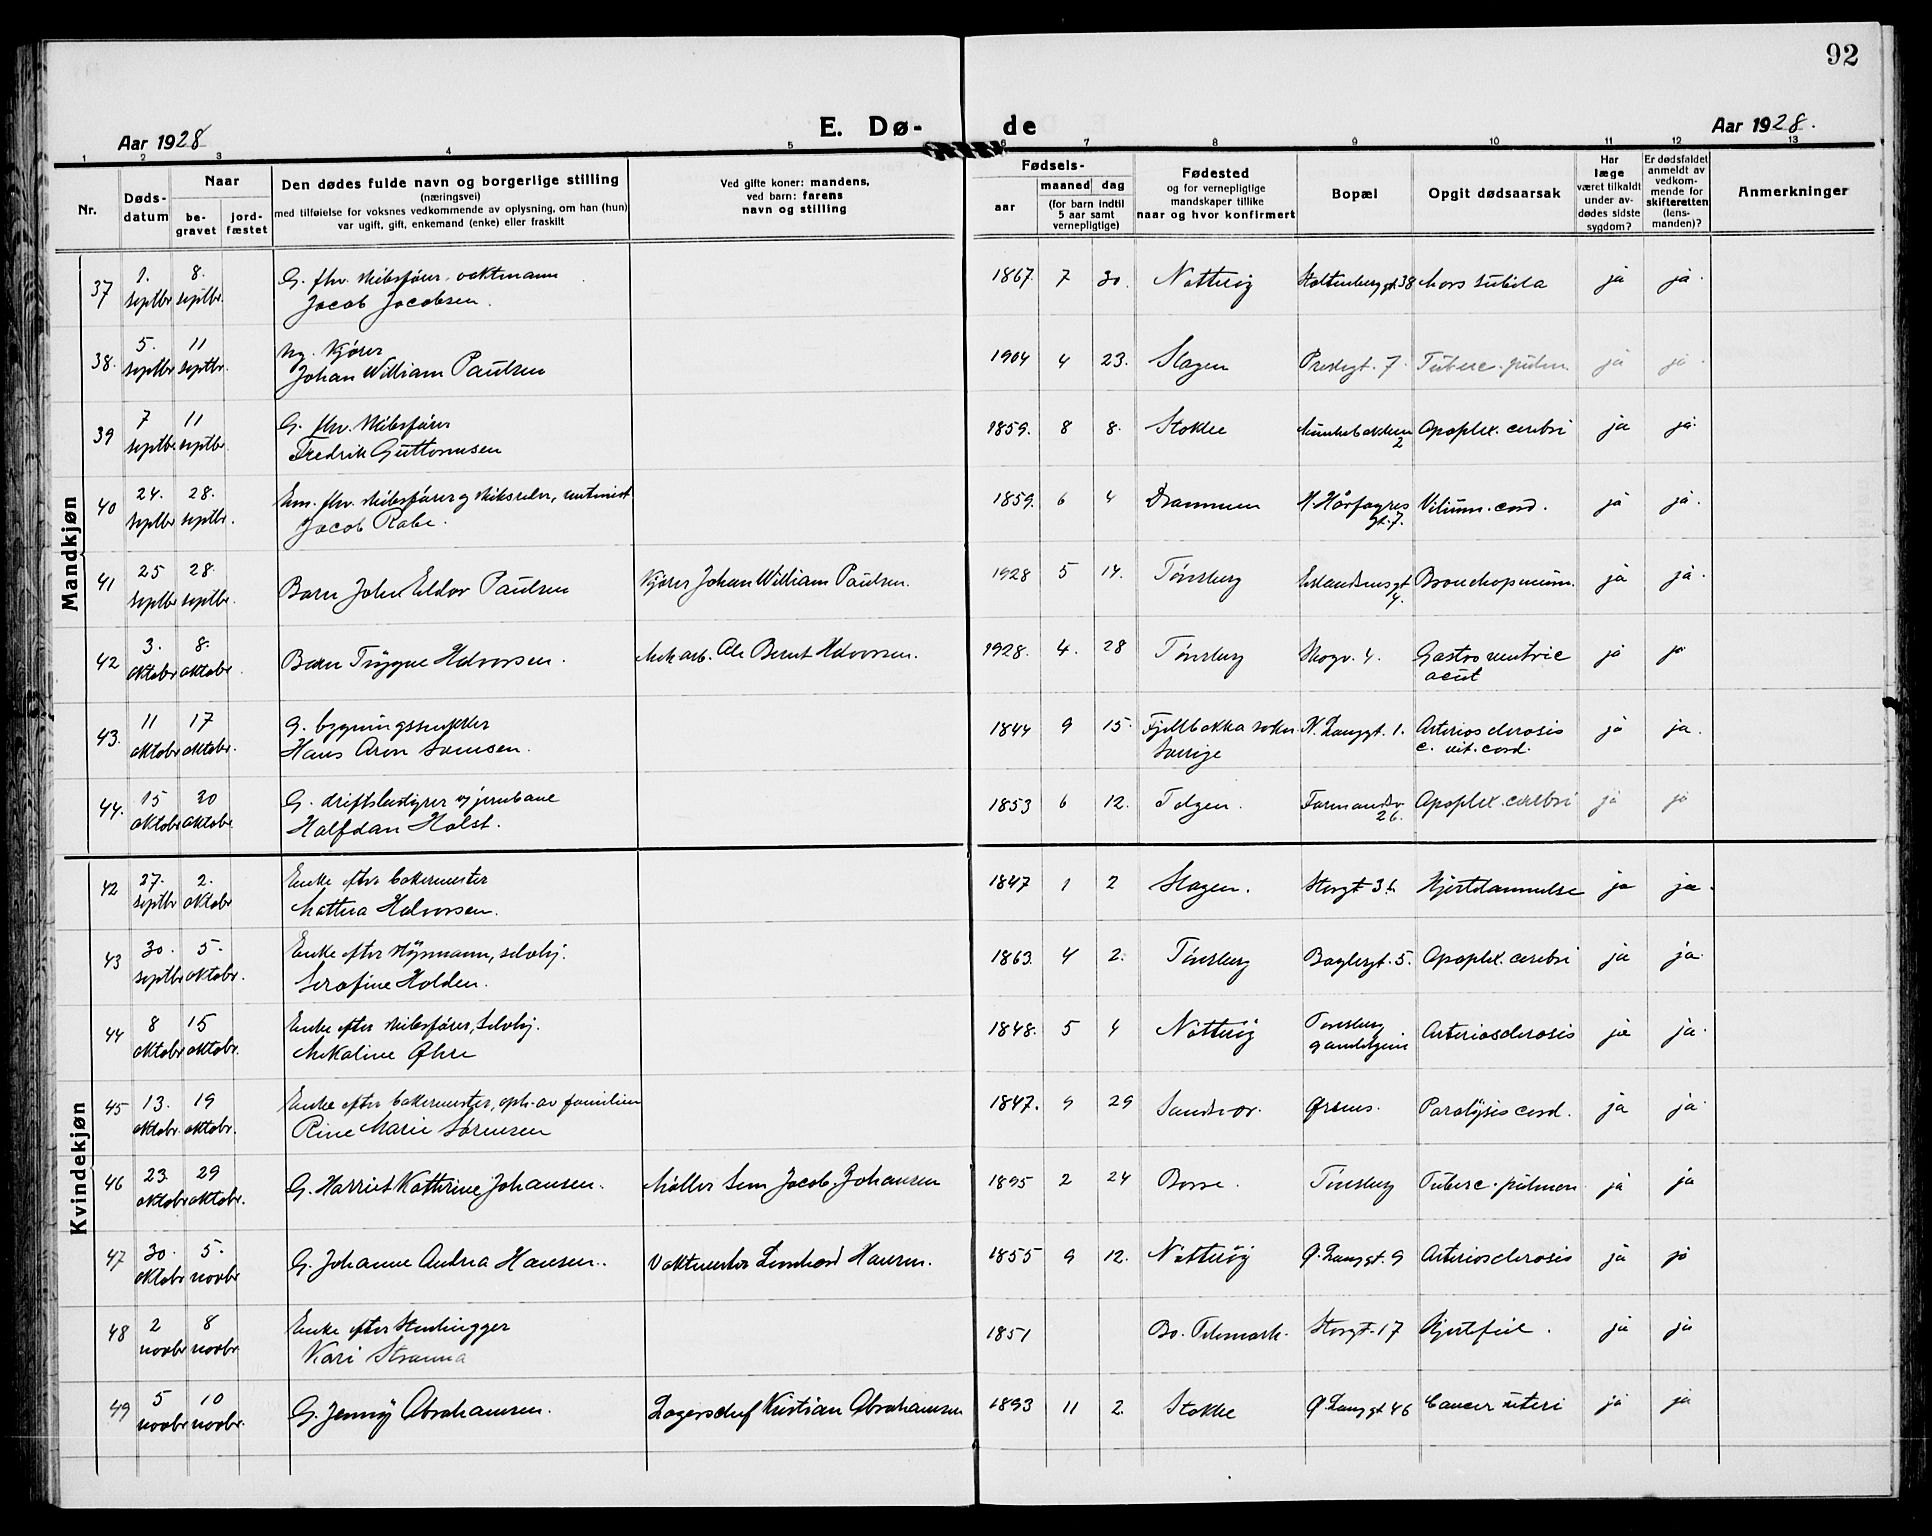 92
Aar 1928
E. Dø-
de
Aar 1928.
1 2 3 4 5 6 7 8 9 10 11 12 13
Nr.
Døds-
datum
Naar
be-
gravet
jord-
fæstet
Den dødes fulde navn og borgerlige stilling
(næringsvei)
med tilføielse for voksnes vedkommende av oplysning, om han (hun)
var ugift, gift, enkemand (enke) eller fraskilt
Ved gifte koner: mandens,
ved barn: farens
navn og stilling
Fødsels-
aar
maaned dag
(for barn indtil
5 aar samt
vernepligtige)
Fødested
og for vernepligtige
mandskaper tillike
naar og hvor konfirmert
Bopæl
Opgit dødsaarsak
Har
læge
været tilkaldt
under av-
dødes sidste
sygdom?
Er dødsfaldet
anmeldt av
vedkom-
mende for
skifteretten
(lens-
manden)?
Anmerkninger
Mandkjøn
37 1. septbr 8. septbr.
G. fhv. skibsfører, vaktmann
Jacob Jacobsen.
1867. 7 30. Nøtterøy Stoltenberg gt. 38 Mors subita ja ja.
38. 5. septbr 11 septbr.
Ug. kjører
Johan William Paulsen
1904 4 23. Slagen Prestegt. 7. Tuberc. pulm. ja ja.
39 7 septbr 11 septbr.
G. fhv. skibsfører
Fredrik Guttormsen
1859. 8 8. Stokke Munkebakken 2 Apoplex. cerebri ja ja.
40 24. septbr 28. septbr.
Em. fhv. skibsfører og skibsreder, rentenist
Jacob Rabe.
1859. 6 4 Drammen H. Hårfagres gt. 7. Vitium. cord. ja ja.
41 25 septbr 28. septbr.
Barn John Eldov Paulsen
Kjører Johan William Paulsen.
1928 5 14. Tønsberg gt. 4. Bronchopneum. ja ja.
42 3. oktobr 8. oktobr.
Barn Trygve Halvorsen.
Mek arb. Ole Bernt Halvorsen.
1928. 4. 28 Tønsberg Skogv. 4. Gastro
acut ja ja
43. 11 oktobr 17 oktobr.
G. bygningssnekker
Hans Aron Svensen.
1844 9 15. Fjellbakka sokn
Sverige N. Langgt. 1. Arteriosclerosis
c. vit. cord. ja ja.
44. 15 oktobr 20 oktobr.
G. driftsbestyrer v jernbane
Halfdan Holst.
1853 6 12. Tolgen. Farmandsv. 26. Apoplex. cerebri ja ja
Kvindekjøn
42 27. septbr 2. oktobr
Enke efter bakermester
Mathea Halvorsen.
1847 1 2 Slagen. Storgt 36 Hjertelammelse ja ja.
43 30. septbr 5. oktobr.
Enke efter sjømann, selvhj.
Serafine Holden.
1863. 4 2. Tønsberg Baglergt. 5. Apoplex. cerebri ja ja.
44 8 oktobr 15 oktobr.
Enke efter skibsfører, selvhj.
Mikaline Øhre
1848. 5 4 Nøtterøy Tønsberg
gamlehjem Arteriosclerosis ja ja.
45 13. oktobr. 19 oktobr.
Enke efter bakermester, oph. av familien
Rine Marie Sørensen
1847. 9 29 Sandsvær. Ørsnes. Paralysis cord. ja ja.
46 23. oktobr 29 oktobr.
G. Harriet Kathrine Johansen.
Møller Sem Jacob Johansen
1895 2 24 Borre. Tønsberg Tuberc. pulmon. ja ja
47 30. oktobr 5. novbr
G. Johanne Andrea Hansen.
Vaktmester Leonhard Hansen.
1855 9 12. Nøtterøy Ø. Langgt. 9 Arteriosclerosis ja ja
48 2 novbr 8 novbr.
Enke efter stenhugger
Kari Stranna
1851 Bø. Telemark. Storgt. 17 Hjertfeil. ja ja
49 5 novbr 10 novbr.
G. Jenny Abrahamsen.
Lagerschef Kristian Abrahamsen
1893 11 2. Stokke Ø. Langgt 46 Cancer uteri ja ja